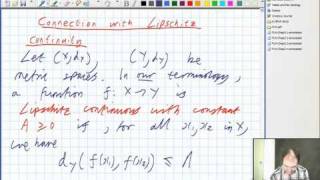 Connection with Lipschitz
Continuity
Let (X,dX), (Y,dY) be
metric spaces. In our terminology,
a function f: X→Y is
Lipschitz continuous with constant
Λ ≥ 0 if, for all x1,x2 in X,
we have
dY( f(x1), f(x2) ) ≤ Λ